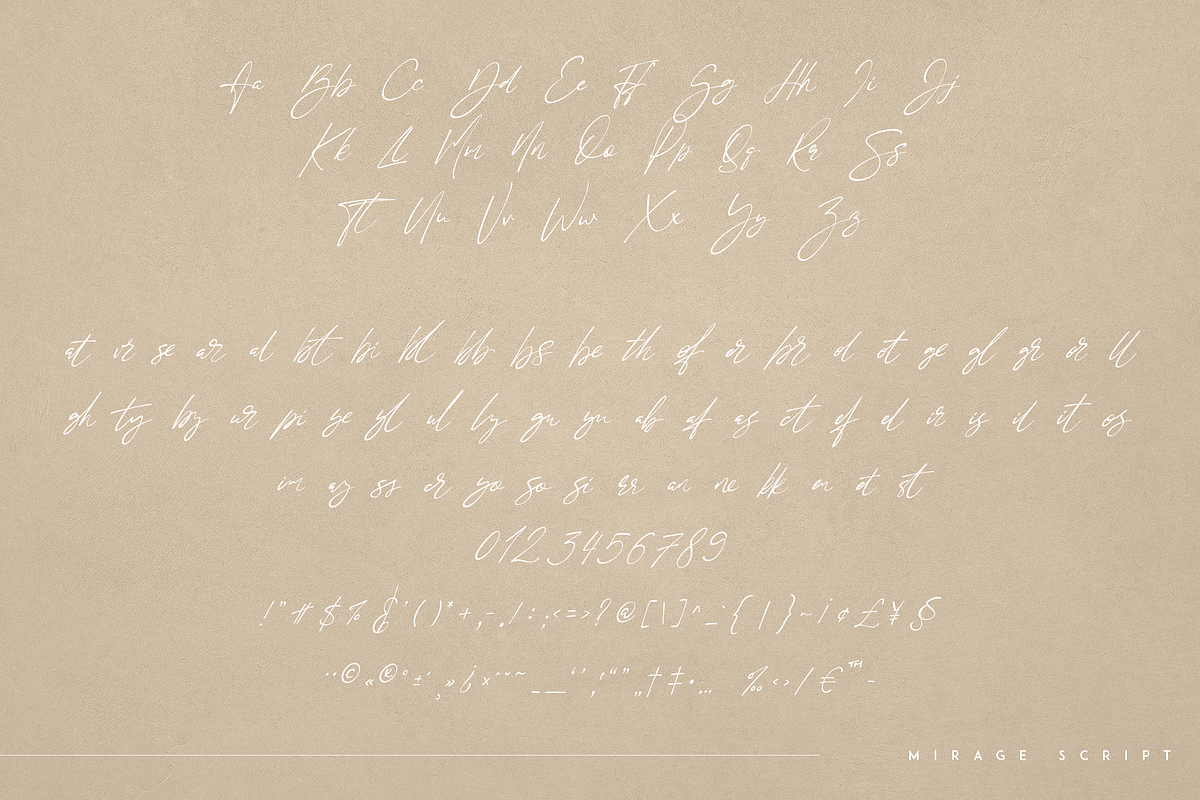 Aa Bb Cc Dd Ee Ff Gg Hh Ii Jj
Kk Ll Mm Nn Oo Pp Qq Rr Ss
Tt Uu Vv Ww Xx Yy Zz
at vr se ar al bt bi bl bb bs be th of er br ol ot ge gl gr or ll
gh ty by ur pi ye yl ul ly gu yu ab af as ct ef el ir is il it os
im ay ss cr yo so si rr an ne kk en et st
0123456789
!"#$%&'()*+,-./:;<=>?@[\]^_`{|}~¡¢£¥§
¨©«®°±´¸»¿×ˆ˘˜–—‘’‚“”„†‡•… ‰‹›⁄€™−
MIRAGE SCRIPT